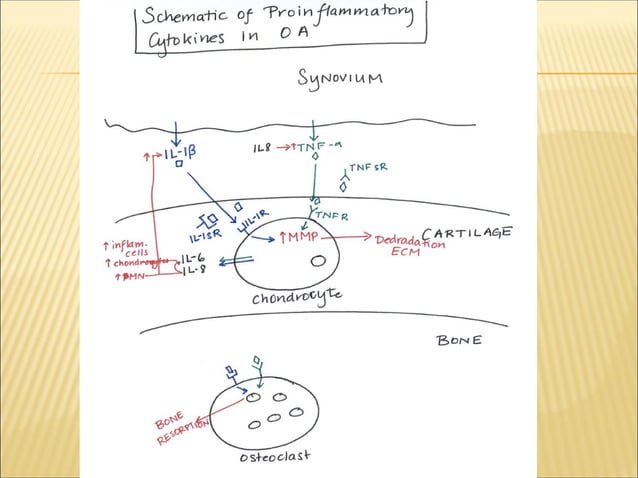 Schematic of Proinflammatory
Cytokines in OA
SYNOVIUM
↑→ IL-1β
IL8 →↑TNF-α
TNFsR
TNFR
IL-1R
IL-1sR
↑MMP → Dedradation
ECM
CARTILAGE
↑ inflam.
cells
↑ chondrocyte
↑PMN
IL-6
IL-8
chondrocyte
BONE
BONE
RESORPTION
osteoclast